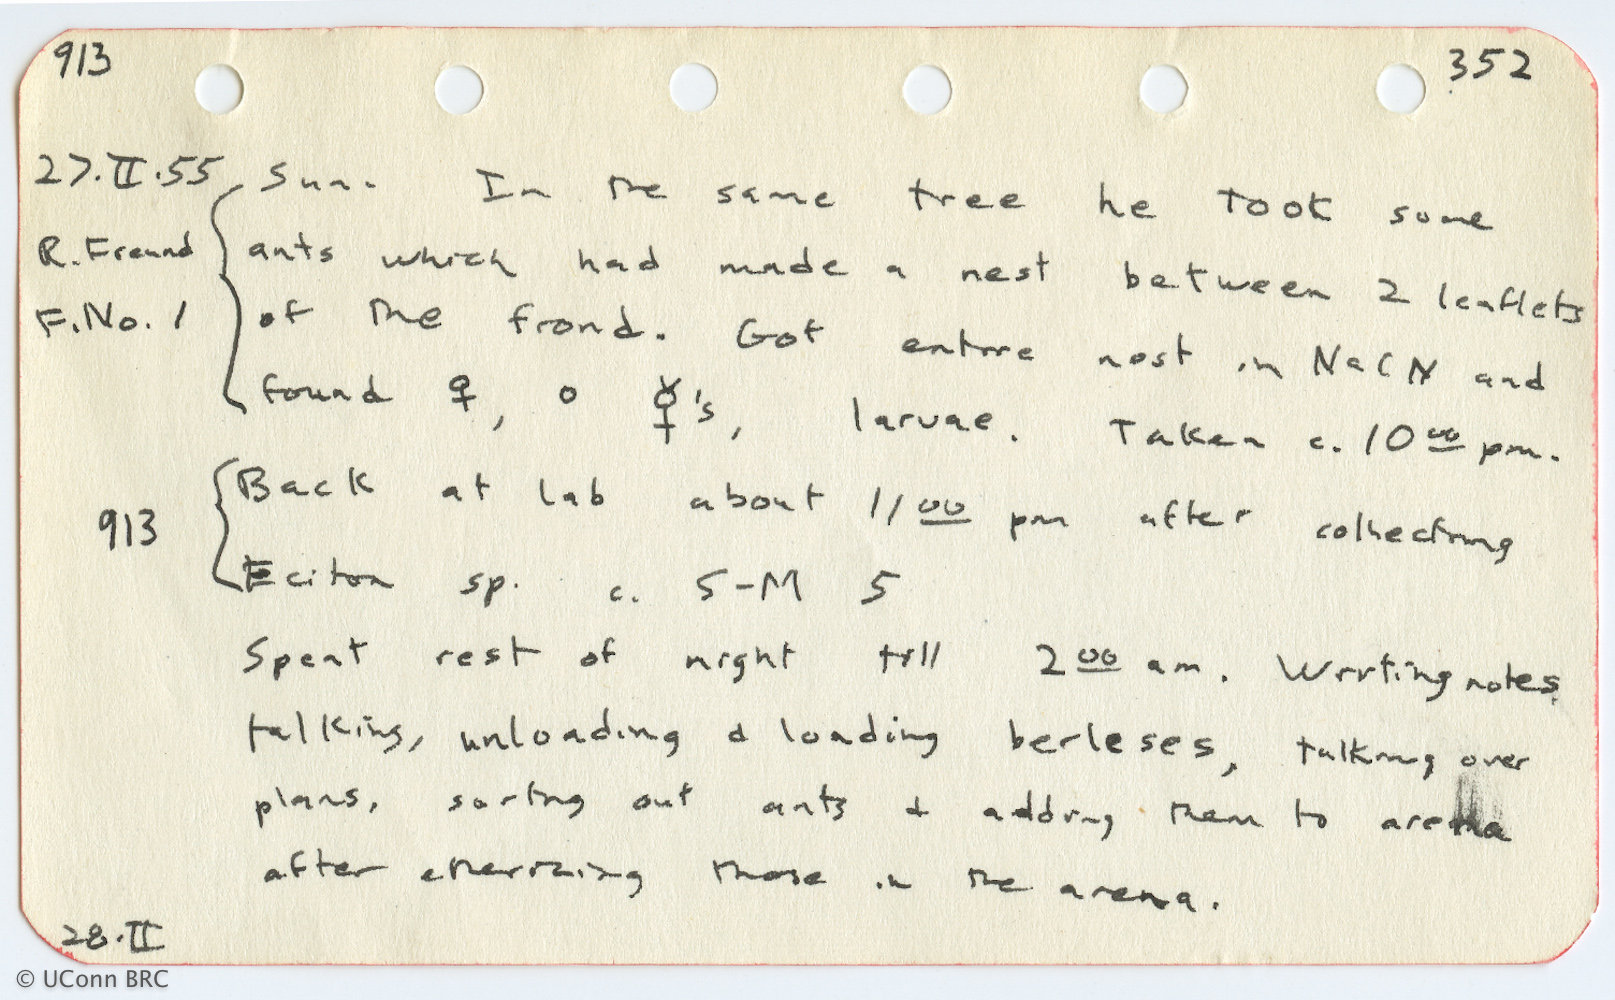 913 352
27.II.55 Sun. In the same tree he took some
R. Freund ants which had made a nest between 2 leaflets
F. No. 1 of the frond. Got entire nest in NaCN and
found ♀, o ☿'s, larvae. Taken c. 10 00 pm.
Back at lab about 11 00 pm after collecting
913
Eciton sp. c. S-M 5
Spent rest of night till 2 00 am. Writing notes,
talking, unloading & loading berleses, talking over
plans, sorting out ants & adding them to arena
after etherizing those in the arena.
28.II
© UConn BRC